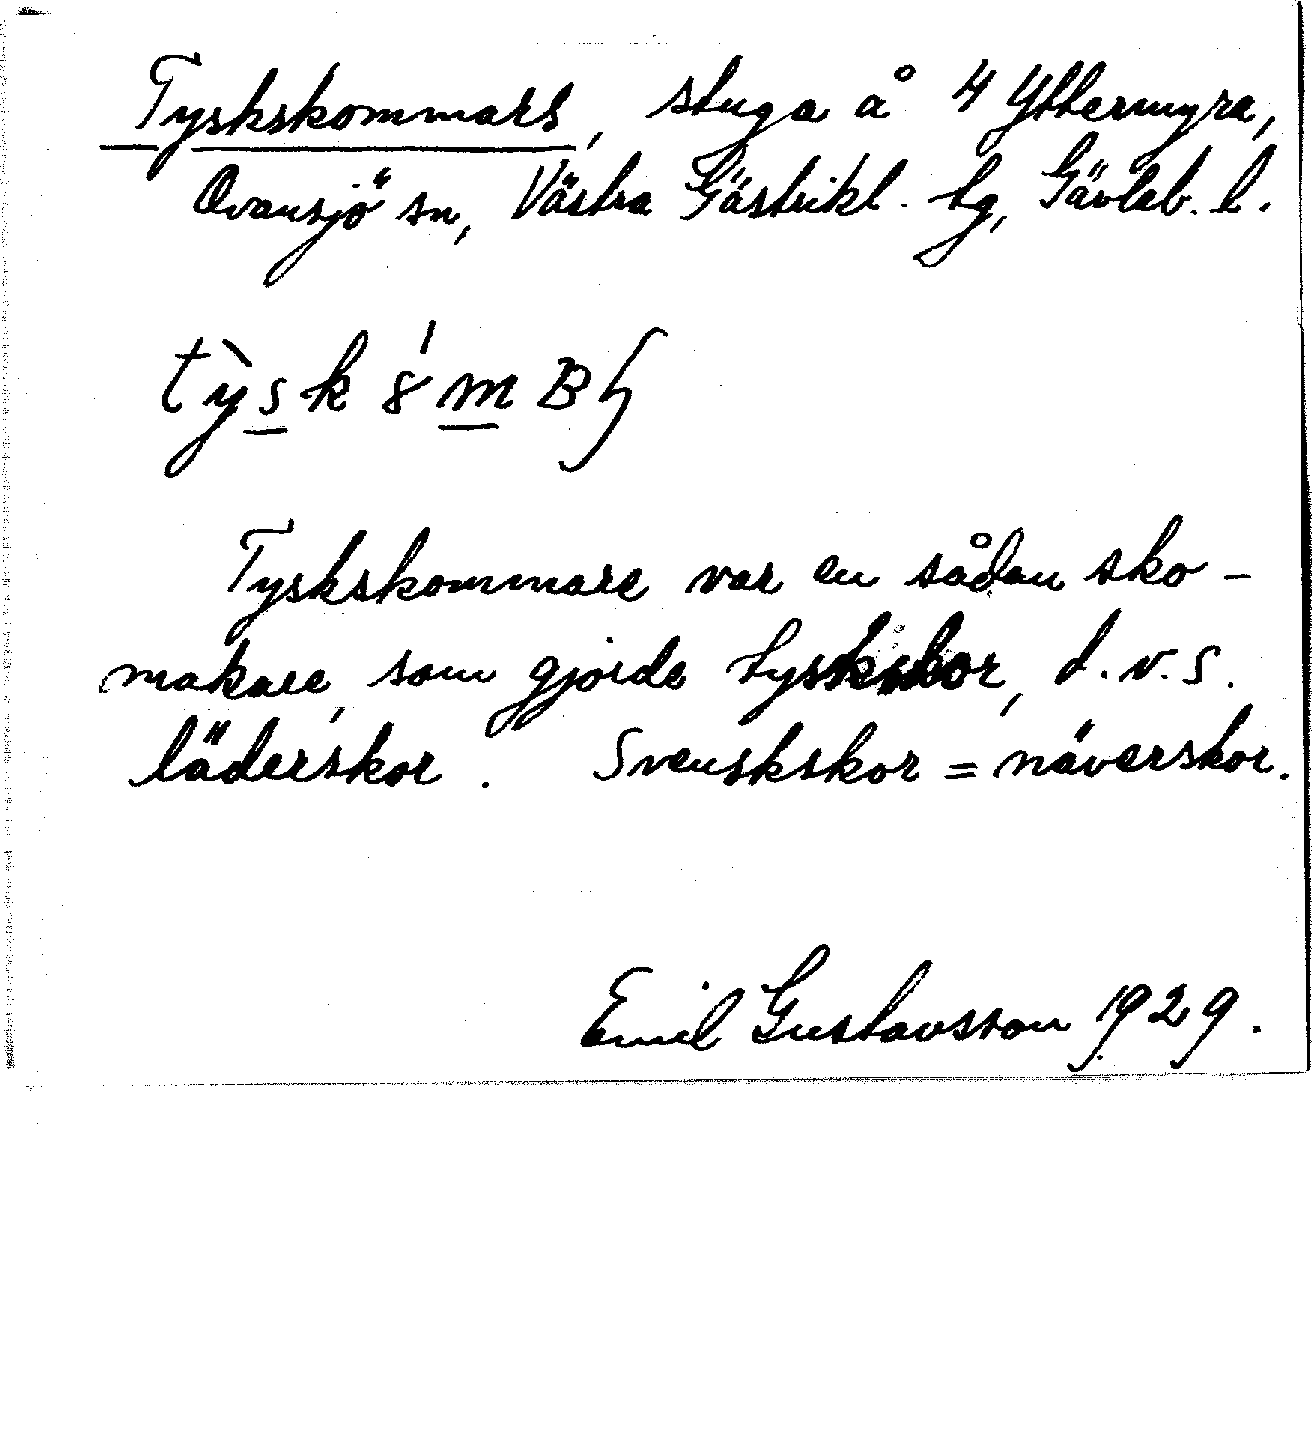 Tyskskommars, stuga å 4 Yttermyra,
Ovansjö sn, Västra Gästrikl. tg, Gävleb. l.
Tyskskommare var en sådan sko-
makare, som gjorde tyskskor, d.v.s.
läderskor. Svenskskor = näverskor.
Emil Gustavsson 1929.